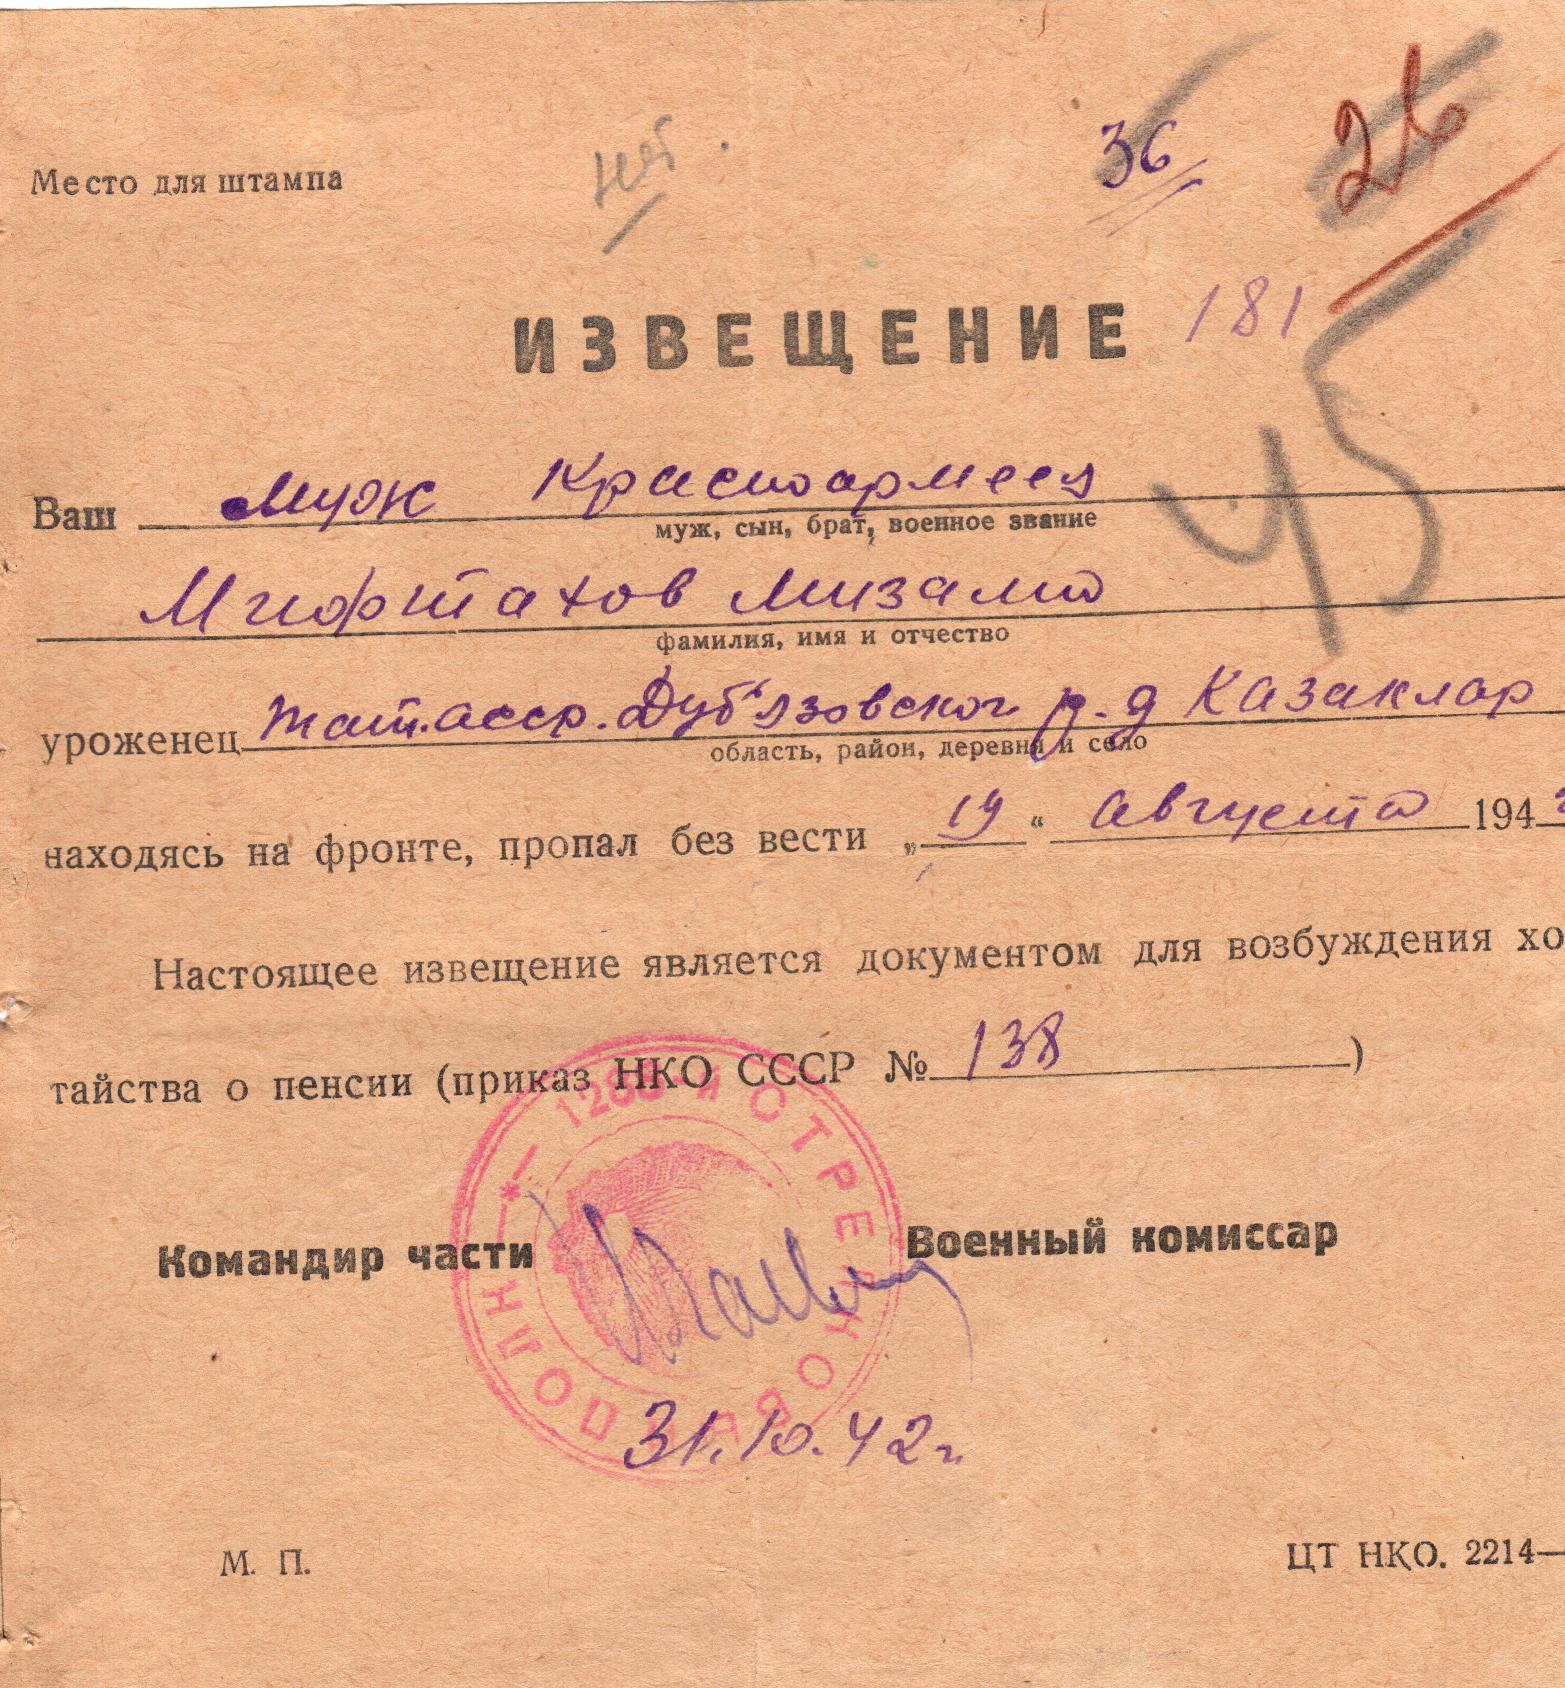 нет.
36
26
Место для штампа
ИЗВЕЩЕНИЕ 181
45
Ваш муж Красноармеец
муж, сын, брат, военное звание
Мифтахов Мизами
фамилия, имя и отчество
уроженец Тат.асср. Дуб'язовског р. д Казаклар
область, район, деревня и село
находясь на фронте, пропал без вести „19“ августа 194
Настоящее извещение является документом для возбуждения хо
тайства о пенсии (приказ НКО СССР № 138)
СТРЕЛКОВЫЙ ПОЛК
Командир части Военный комиссар
31.10.42г
М. П. ЦТ НКО. 2214—